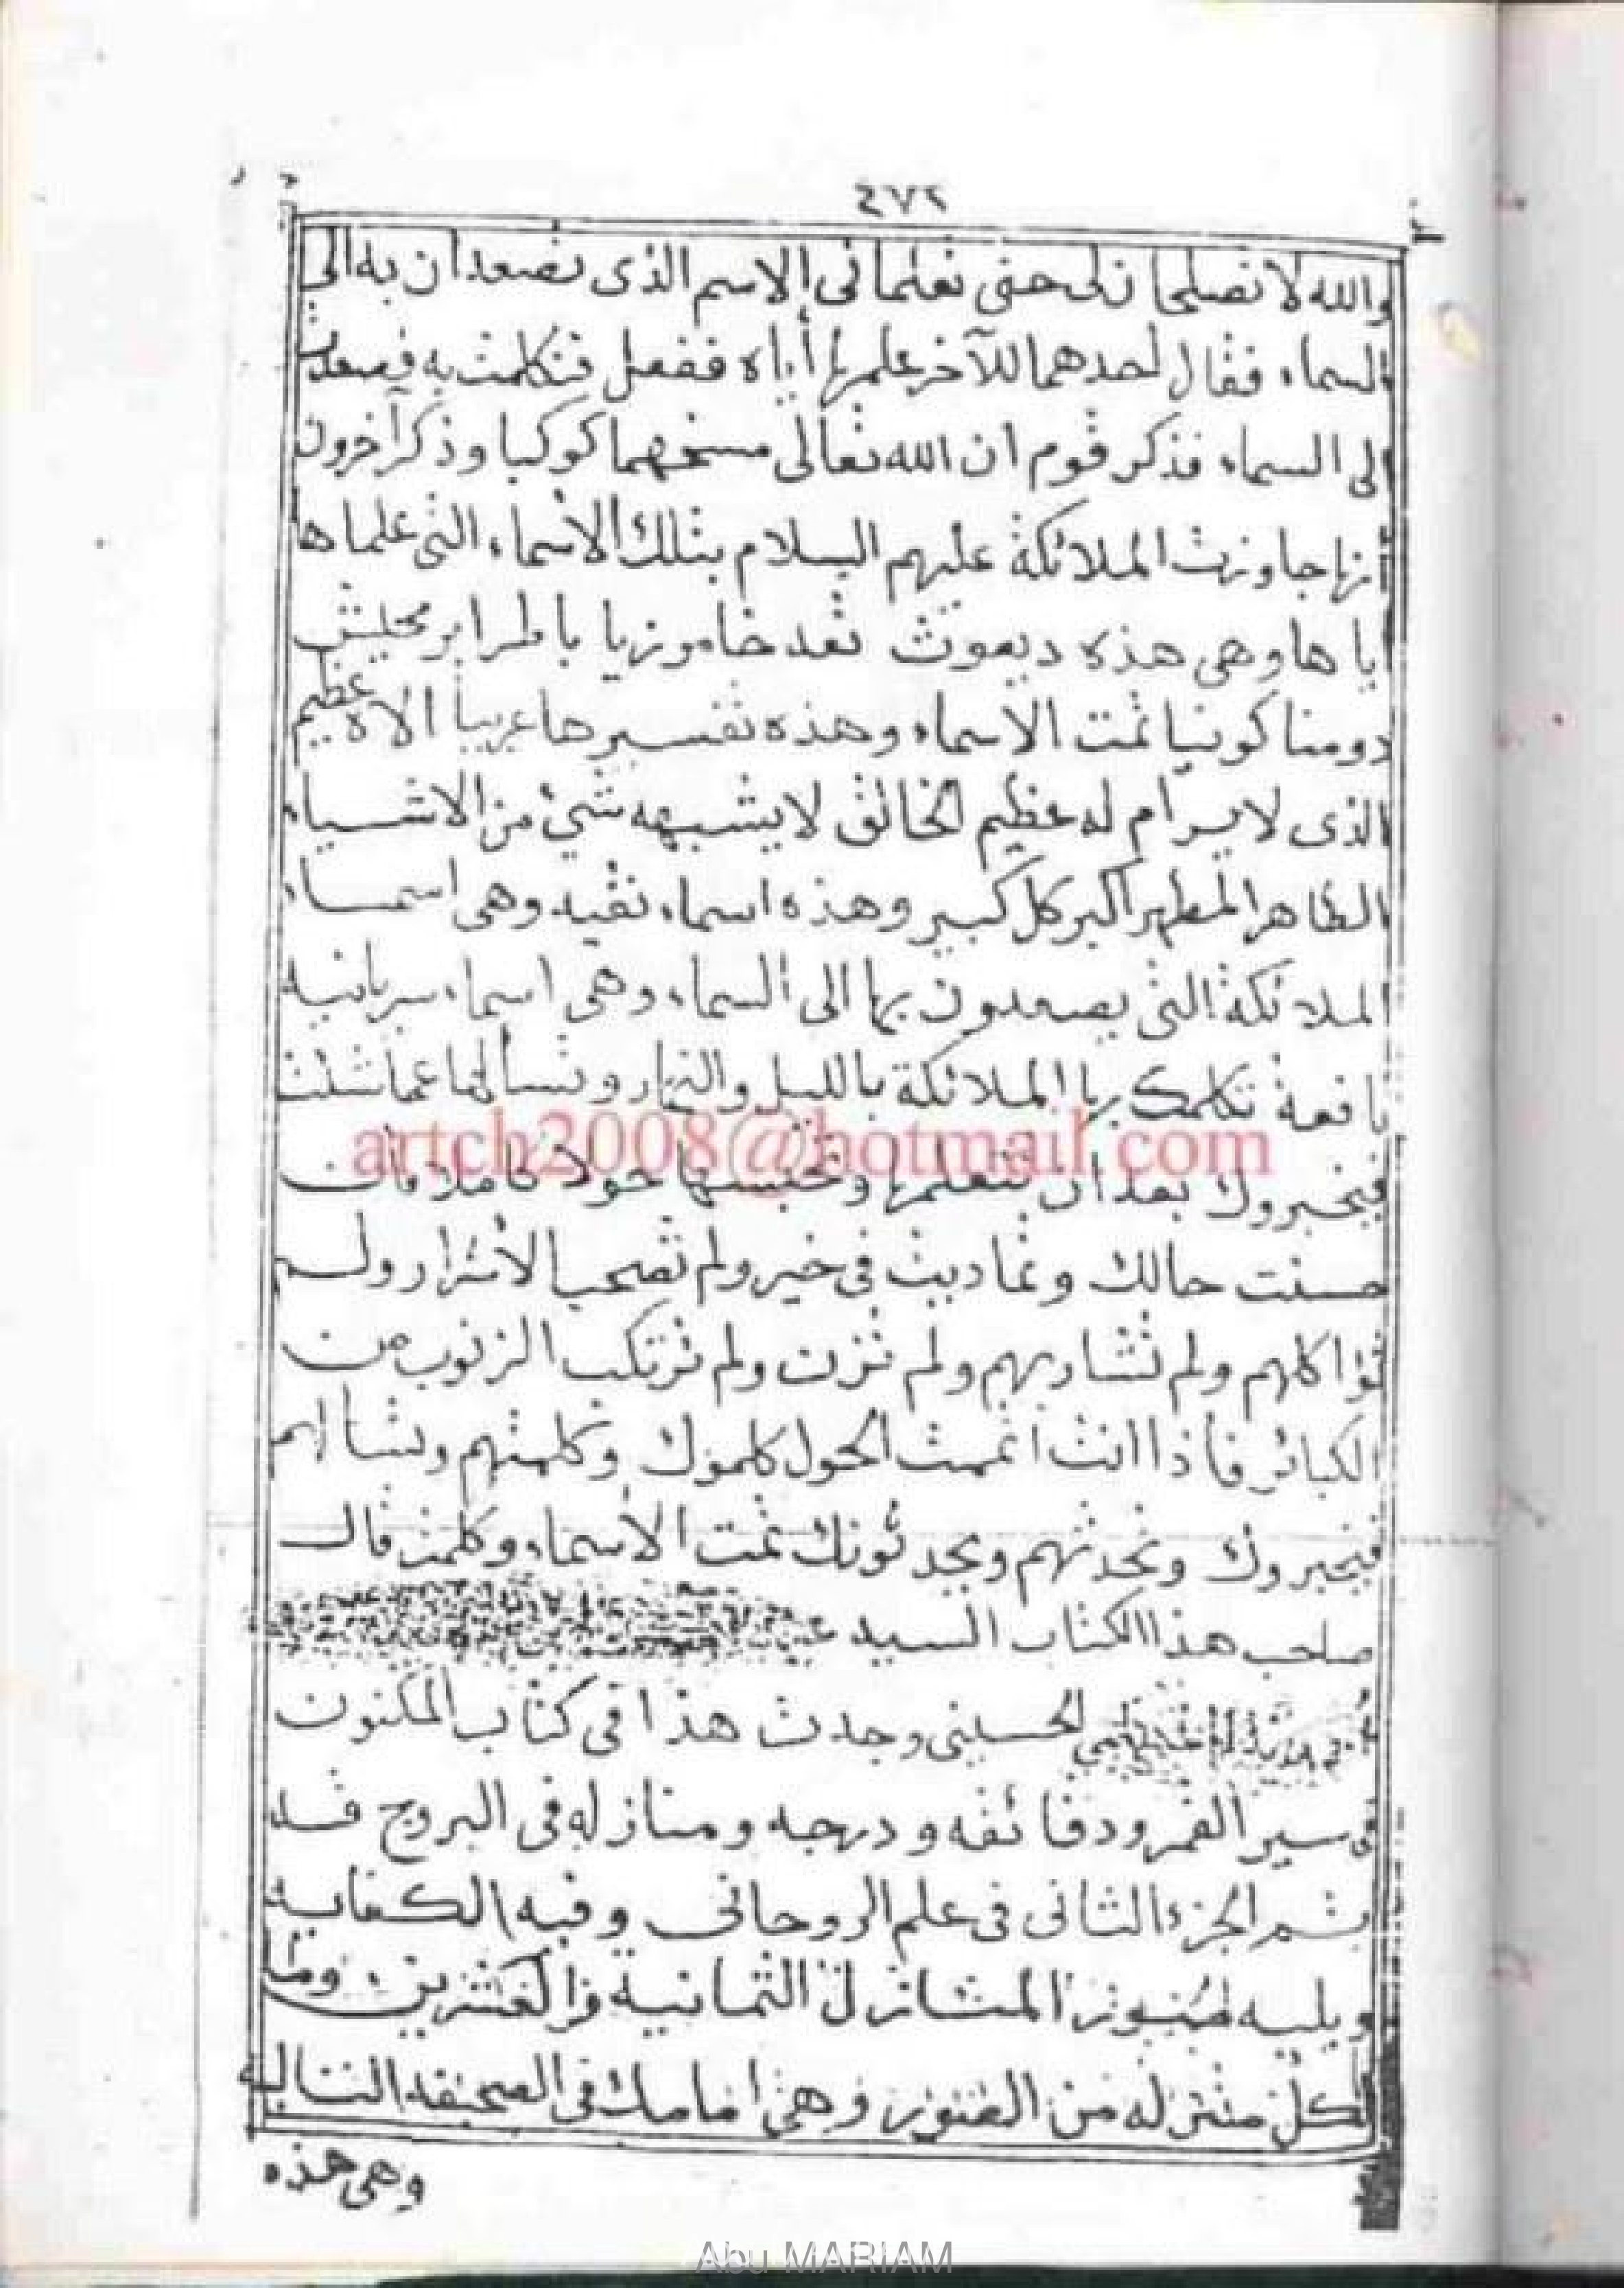 ٤٧٢
والله لا تصلحان لى حتى تعلمانى الاسم الذى تصعدان به الى
السماء فقال احدهما للآخر علمها أياه ففعل فتكلمت به فصعدت
الى السماء فذكر قوم ان الله تعالى مسخهما كوكبا وذكر آخرون
انها جاوزت الملائكة عليهم السلام بتلك الاسماء التى علماها
اياها وهى هذه ديعوث نعد خاموزيا باطرا
دومنا كوينيا تمت الاسماء وهذه تفسيرها عربيا الاه عظيم
الذى لا يرام له عظيم الخالق لا يشبهه شئ من الاشياء
الطاهر المطهر اكبر كل كبير وهذه اسماء نقيه وهى اسماء
الملائكة التى يصعدون بها الى السماء وهى اسماء سريانيه
نافعة تكلمك بها الملائكة بالليل والنهار وتسألها عما شئت
فيخبروك بعد ان تتعلمها وتحبسها حولا كاملا فان
حسنت حالك وتماديت فى خير ولم تصحب الأشرار ولم
تؤاكلهم ولم تشاربهم ولم تزن ولم ترتكب الزنوب من
الكبائر فاذا انت اتممت الحول كلموك وكلمتهم وتسألهم
فيخبروك وتحدثهم ويحدثونك تمت الاسماء وكلمن قال
صاحب هذا الكتاب السيد
الحسينى وجدت هذا فى كتاب المكنون
فى سير القمر ودقائقه ودرجه ومنازله فى البروج قد
تم الجزء الثانى فى علم الروحانى وفيه الكفايه
ويليه صور المنازل الثمانية والعشرين وما
لكل منزله من الصور وهى امامك فى الصحيفه التاليه
وهى هذه
artch2008@hotmail.com
Abu MARIAM